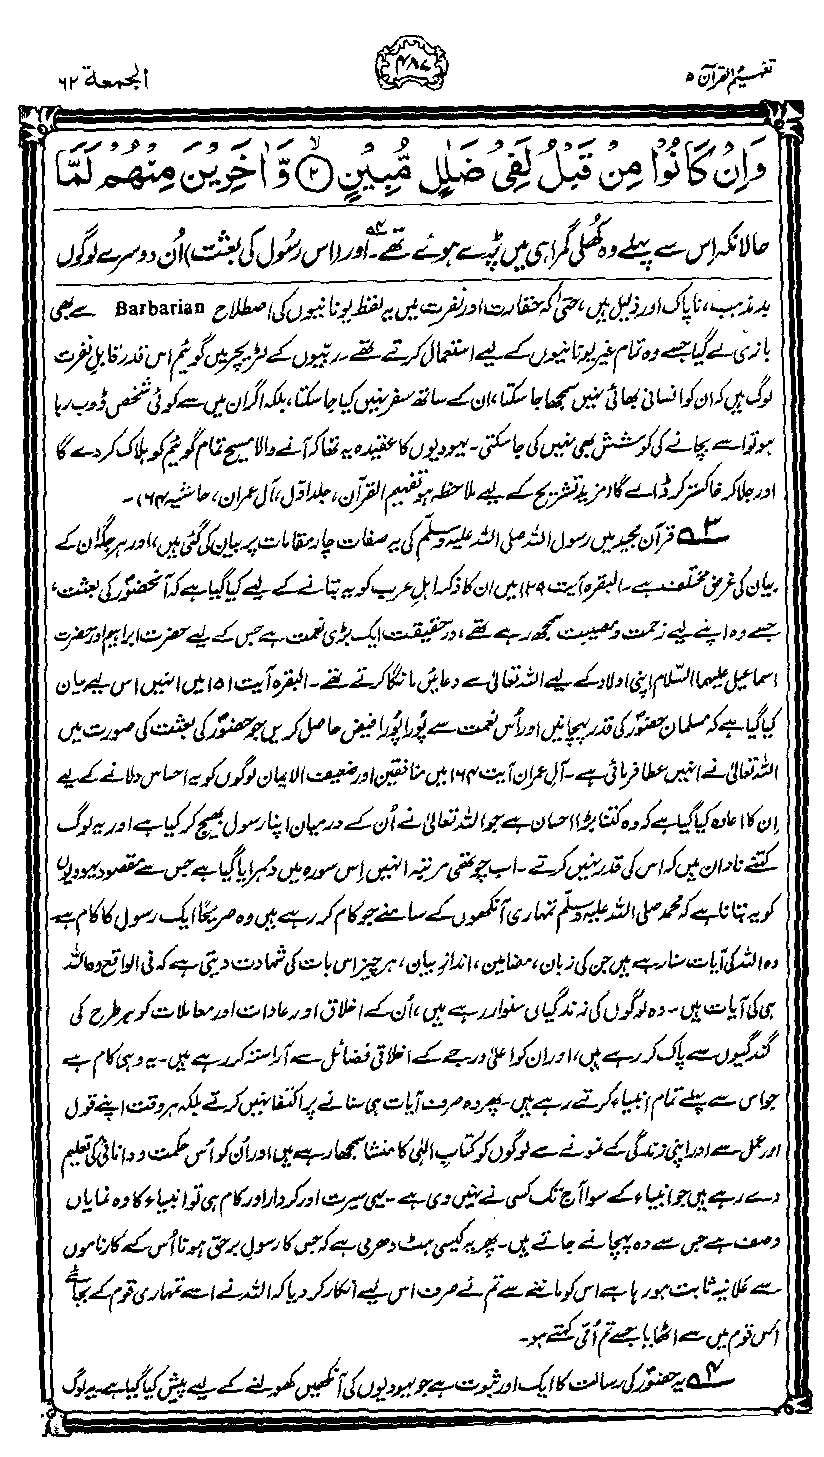 تفہیم القرآن ۵
۴۸۷
الجمعۃ ۶۲
وَاِنْ كَانُوْا مِنْ قَبْلُ لَفِيْ ضَلٰلٍ مُّبِيْنٍ ۲ وَّاٰخَرِيْنَ مِنْهُمْ لَمَّا
حالانکہ اس سے پہلے وہ کھُلی گمراہی میں پڑے ہوئے تھے۔ ۴ اور (اس رسُول کی بعثت) اُن دوسرے لوگوں
بد مذہب، ناپاک اور ذلیل ہیں، حتیٰ کہ حقارت اور نفرت میں یہ لفظ یونانیوں کی اصطلاح Barbarian سے بھی
بازی لے گیا جسے وہ تمام غیر یونانیوں کے لیے استعمال کرتے تھے۔ ربّیوں کے لٹریچر میں گوئیم اس قدر قابلِ نفرت
لوگ ہیں کہ ان کو انسانی بھائی نہیں سمجھا جا سکتا، ان کے ساتھ سفر نہیں کیا جا سکتا، بلکہ اگر ان میں سے کوئی شخص ڈوب رہا
ہو تو اسے بچانے کی کوشش بھی نہیں کی جا سکتی۔ یہودیوں کا عقیدہ یہ تھا کہ آنے والا مسیح تمام گوئیم کو ہلاک کر دے گا
اور جلا کر خاکستر کر ڈالے گا (مزید تشریح کے لیے ملاحظہ ہو تفہیم القرآن، جلد اوّل، آل عمران، حاشیہ ۶۴)۔
۳ قرآن مجید میں رسول اللہ صلی اللہ علیہ وسلّم کی یہ صفات چار مقامات پر بیان کی گئی ہیں، اور ہر جگہ ان کے
بیان کی غرض مختلف ہے۔ البقرہ آیت ۱۲۹ میں ان کا ذکر اہلِ عرب کو یہ بتانے کے لیے کیا گیا ہے کہ آنحضورؐ کی بعثت،
جسے وہ اپنے لیے زحمت و مصیبت سمجھ رہے تھے، درحقیقت ایک بڑی نعمت ہے جس کے لیے حضرت ابراہیم اور حضرت
اسماعیل علیہما السّلام اپنی اولاد کے لیے اللہ تعالیٰ سے دعائیں مانگا کرتے تھے۔ البقرہ آیت ۱۵۱ میں انہیں اس لیے بیان
کیا گیا ہے کہ مسلمان حضورؐ کی قدر پہچانیں اور اُس نعمت سے پُورا پُورا فیض حاصل کریں جو حضورؐ کی بعثت کی صورت میں
اللہ تعالیٰ نے انہیں عطا فرمائی ہے۔ آل عمران آیت ۱۶۴ میں منافقین اور ضعیف الایمان لوگوں کو یہ احساس دلانے کے لیے
اِن کا اعادہ کیا گیا ہے کہ وہ کتنا بڑا احسان ہے جو اللہ تعالیٰ نے اُن کے درمیان اپنا رسول بھیج کر کیا ہے اور یہ لوگ
کتنے نادان ہیں کہ اس کی قدر نہیں کرتے۔ اب چوتھی مرتبہ انہیں اِس سورہ میں دُہرایا گیا ہے جس سے مقصود یہودیوں
کو یہ بتانا ہے کہ محمد صلی اللہ علیہ وسلّم تمہاری آنکھوں کے سامنے جو کام کر رہے ہیں وہ صریحًا ایک رسول کا کام ہے۔
وہ اللہ کی آیات سنا رہے ہیں جن کی زبان، مضامین، اندازِ بیان، ہر چیز اس بات کی شہادت دیتی ہے کہ فی الواقع وہ اللہ
ہی کی آیات ہیں۔ وہ لوگوں کی زندگیاں سنوار رہے ہیں، اُن کے اخلاق اور عادات اور معاملات کو ہر طرح کی
گندگیوں سے پاک کر رہے ہیں، اور ان کو اعلیٰ درجے کے اخلاقی فضائل سے آراستہ کر رہے ہیں۔ یہ وہی کام ہے
جو اس سے پہلے تمام انبیاء کرتے رہے ہیں۔ پھر وہ صرف آیات ہی سنانے پر اکتفا نہیں کرتے بلکہ ہر وقت اپنے قول
اور عمل سے اور اپنی زندگی کے نمونے سے لوگوں کو کتابِ الٰہی کا منشا سمجھا رہے ہیں اور اُن کو اُس حکمت و دانائی کی تعلیم
دے رہے ہیں جو انبیاء کے سوا آج تک کسی نے نہیں دی ہے۔ یہی سیرت اور کردار اور کام ہی تو انبیاء کا وہ نمایاں
وصف ہے جس سے وہ پہچانے جاتے ہیں۔ پھر یہ کیسی ہٹ دھرمی ہے کہ جس کا رسولِ برحق ہونا اُس کے کارناموں
سے علانیہ ثابت ہو رہا ہے اس کو ماننے سے تم نے صرف اس لیے انکار کر دیا کہ اللہ نے اسے تمہاری قوم کے بجائے
اُس قوم میں سے اٹھایا جسے تم اُمّی کہتے ہو۔
۴ یہ حضورؐ کی رسالت کا ایک اور ثبوت ہے جو یہودیوں کی آنکھیں کھولنے کے لیے پیش کیا گیا ہے۔ یہ لوگ